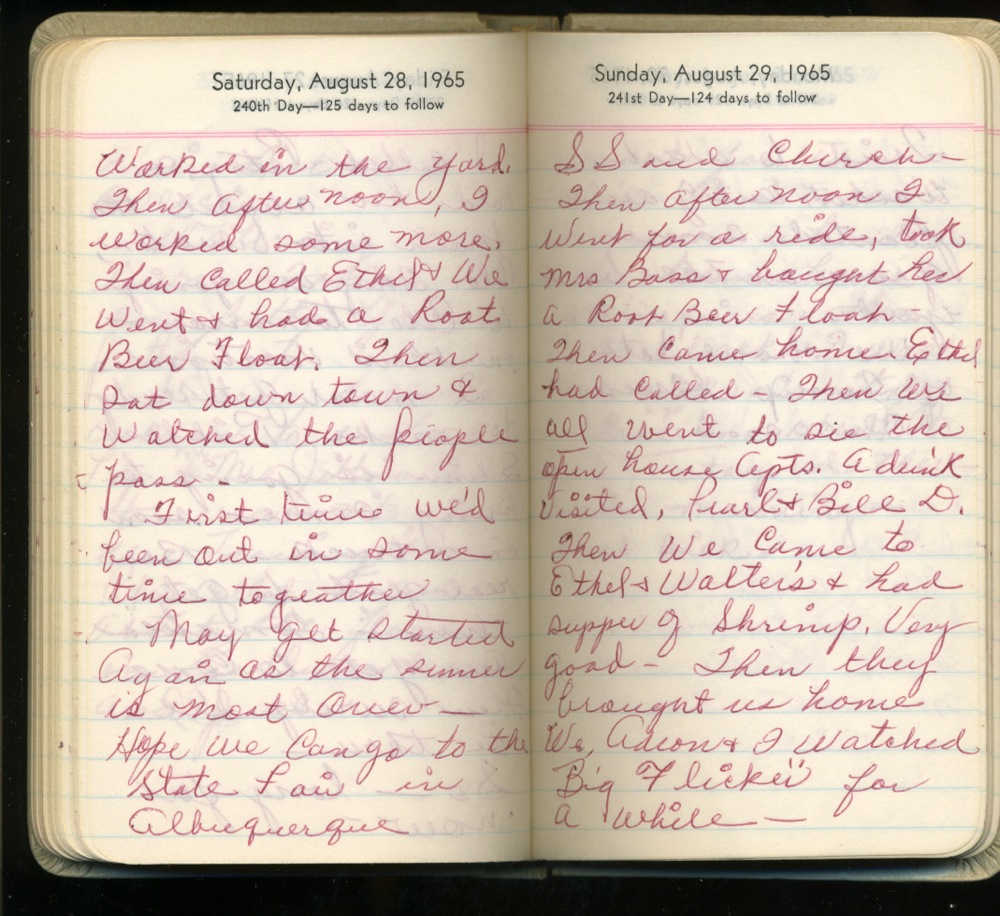 Saturday, August 28, 1965
240th Day—125 days to follow
Worked in the yard.
Then after noon, I
worked some more.
Then called Ethel & We
Went & had a Root
Beer Float. Then
sat down town &
Watched the people
pass -
First time we'd
been out in some
time togeather
May get started
Again as the summer
is most Over —
Hope We Can go to the
State Fair in
Albuquerque
Sunday, August 29, 1965
241st Day—124 days to follow
S S and Church -
Then after noon I
Went for a ride, took
Mrs Bass & bought her
a Root Beer Float -
Then Came home. Ethel
had called - Then we
all went to see the
open house Apts.
Visited, Pearl & Bill D.
Then We Came to
Ethel & Walter's & had
supper of Shrimp. Very
good - Then they
brought us home
We, & I Watched
Big Flicker for
a while —